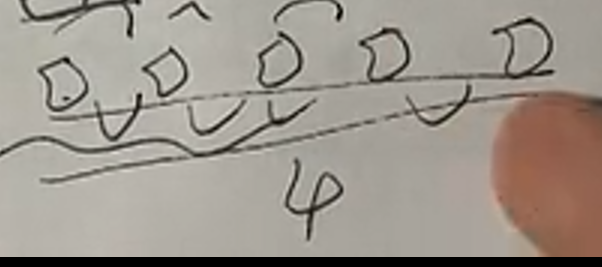 D D D D D
4